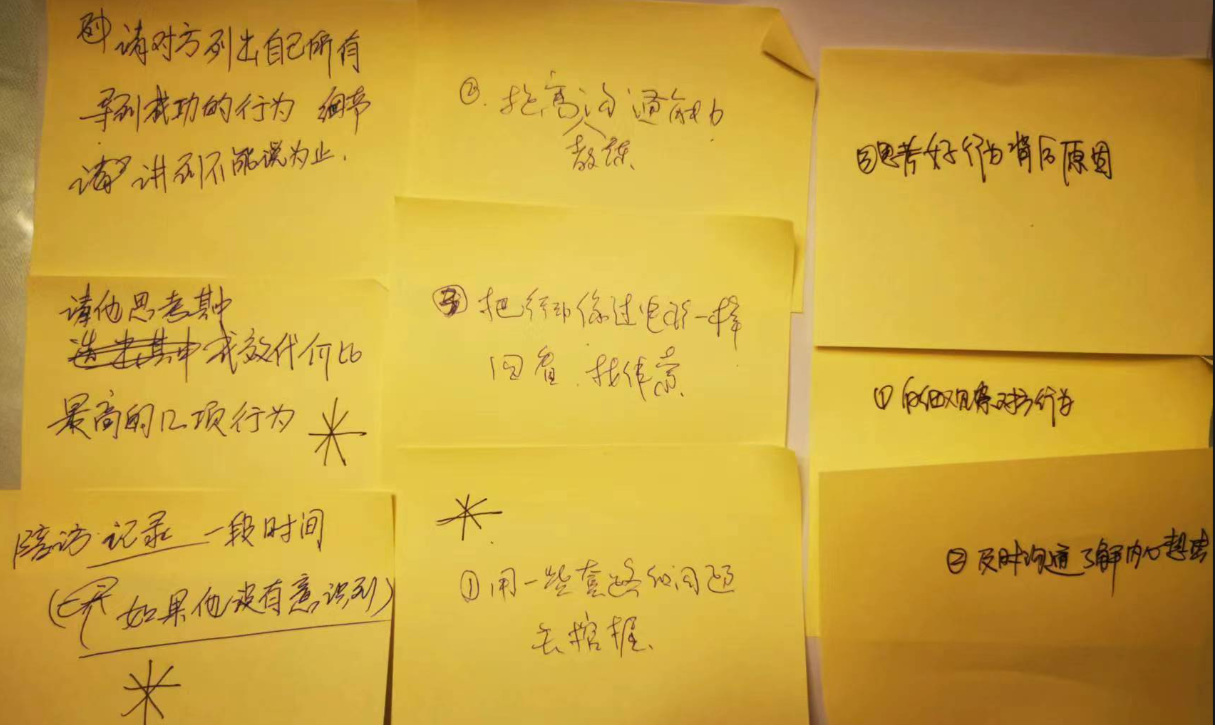 请对方列出自己所有
导到成功的行为 细节
请 讲到不能说为止.
请他思考其中
成效代价比
最高的几项行为
陪访 记录 一段时间
( 如果他没有意识到)
②. 提高沟通能力
教练
③ 把行为像过电影一样
回看. 找作素
①用一些套路的问题
去挖掘.
③思考好行为背后原因
① 仔细观察对方行为
② 及时沟通了解内心想法